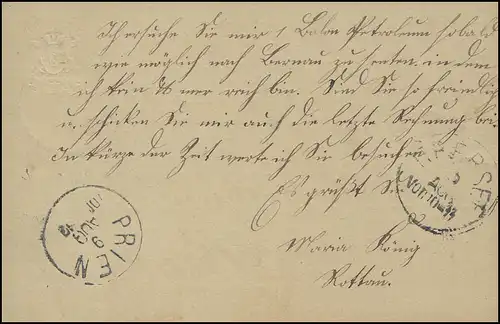 Ich ersuche Sie mir 1 Balon Petroleum sobald
wie möglich nach Bernau zu senten, in dem
ich kein mer reich bin. Sind Sie so freindlig
u. schicken Sie mir auch die letzte Rechnung bei
In kürze der Zeit werte ich Sie besuchen
Es grüßt Sie
Maria König
Rottau.
PRIEN
9 AUG
AUG
VORM